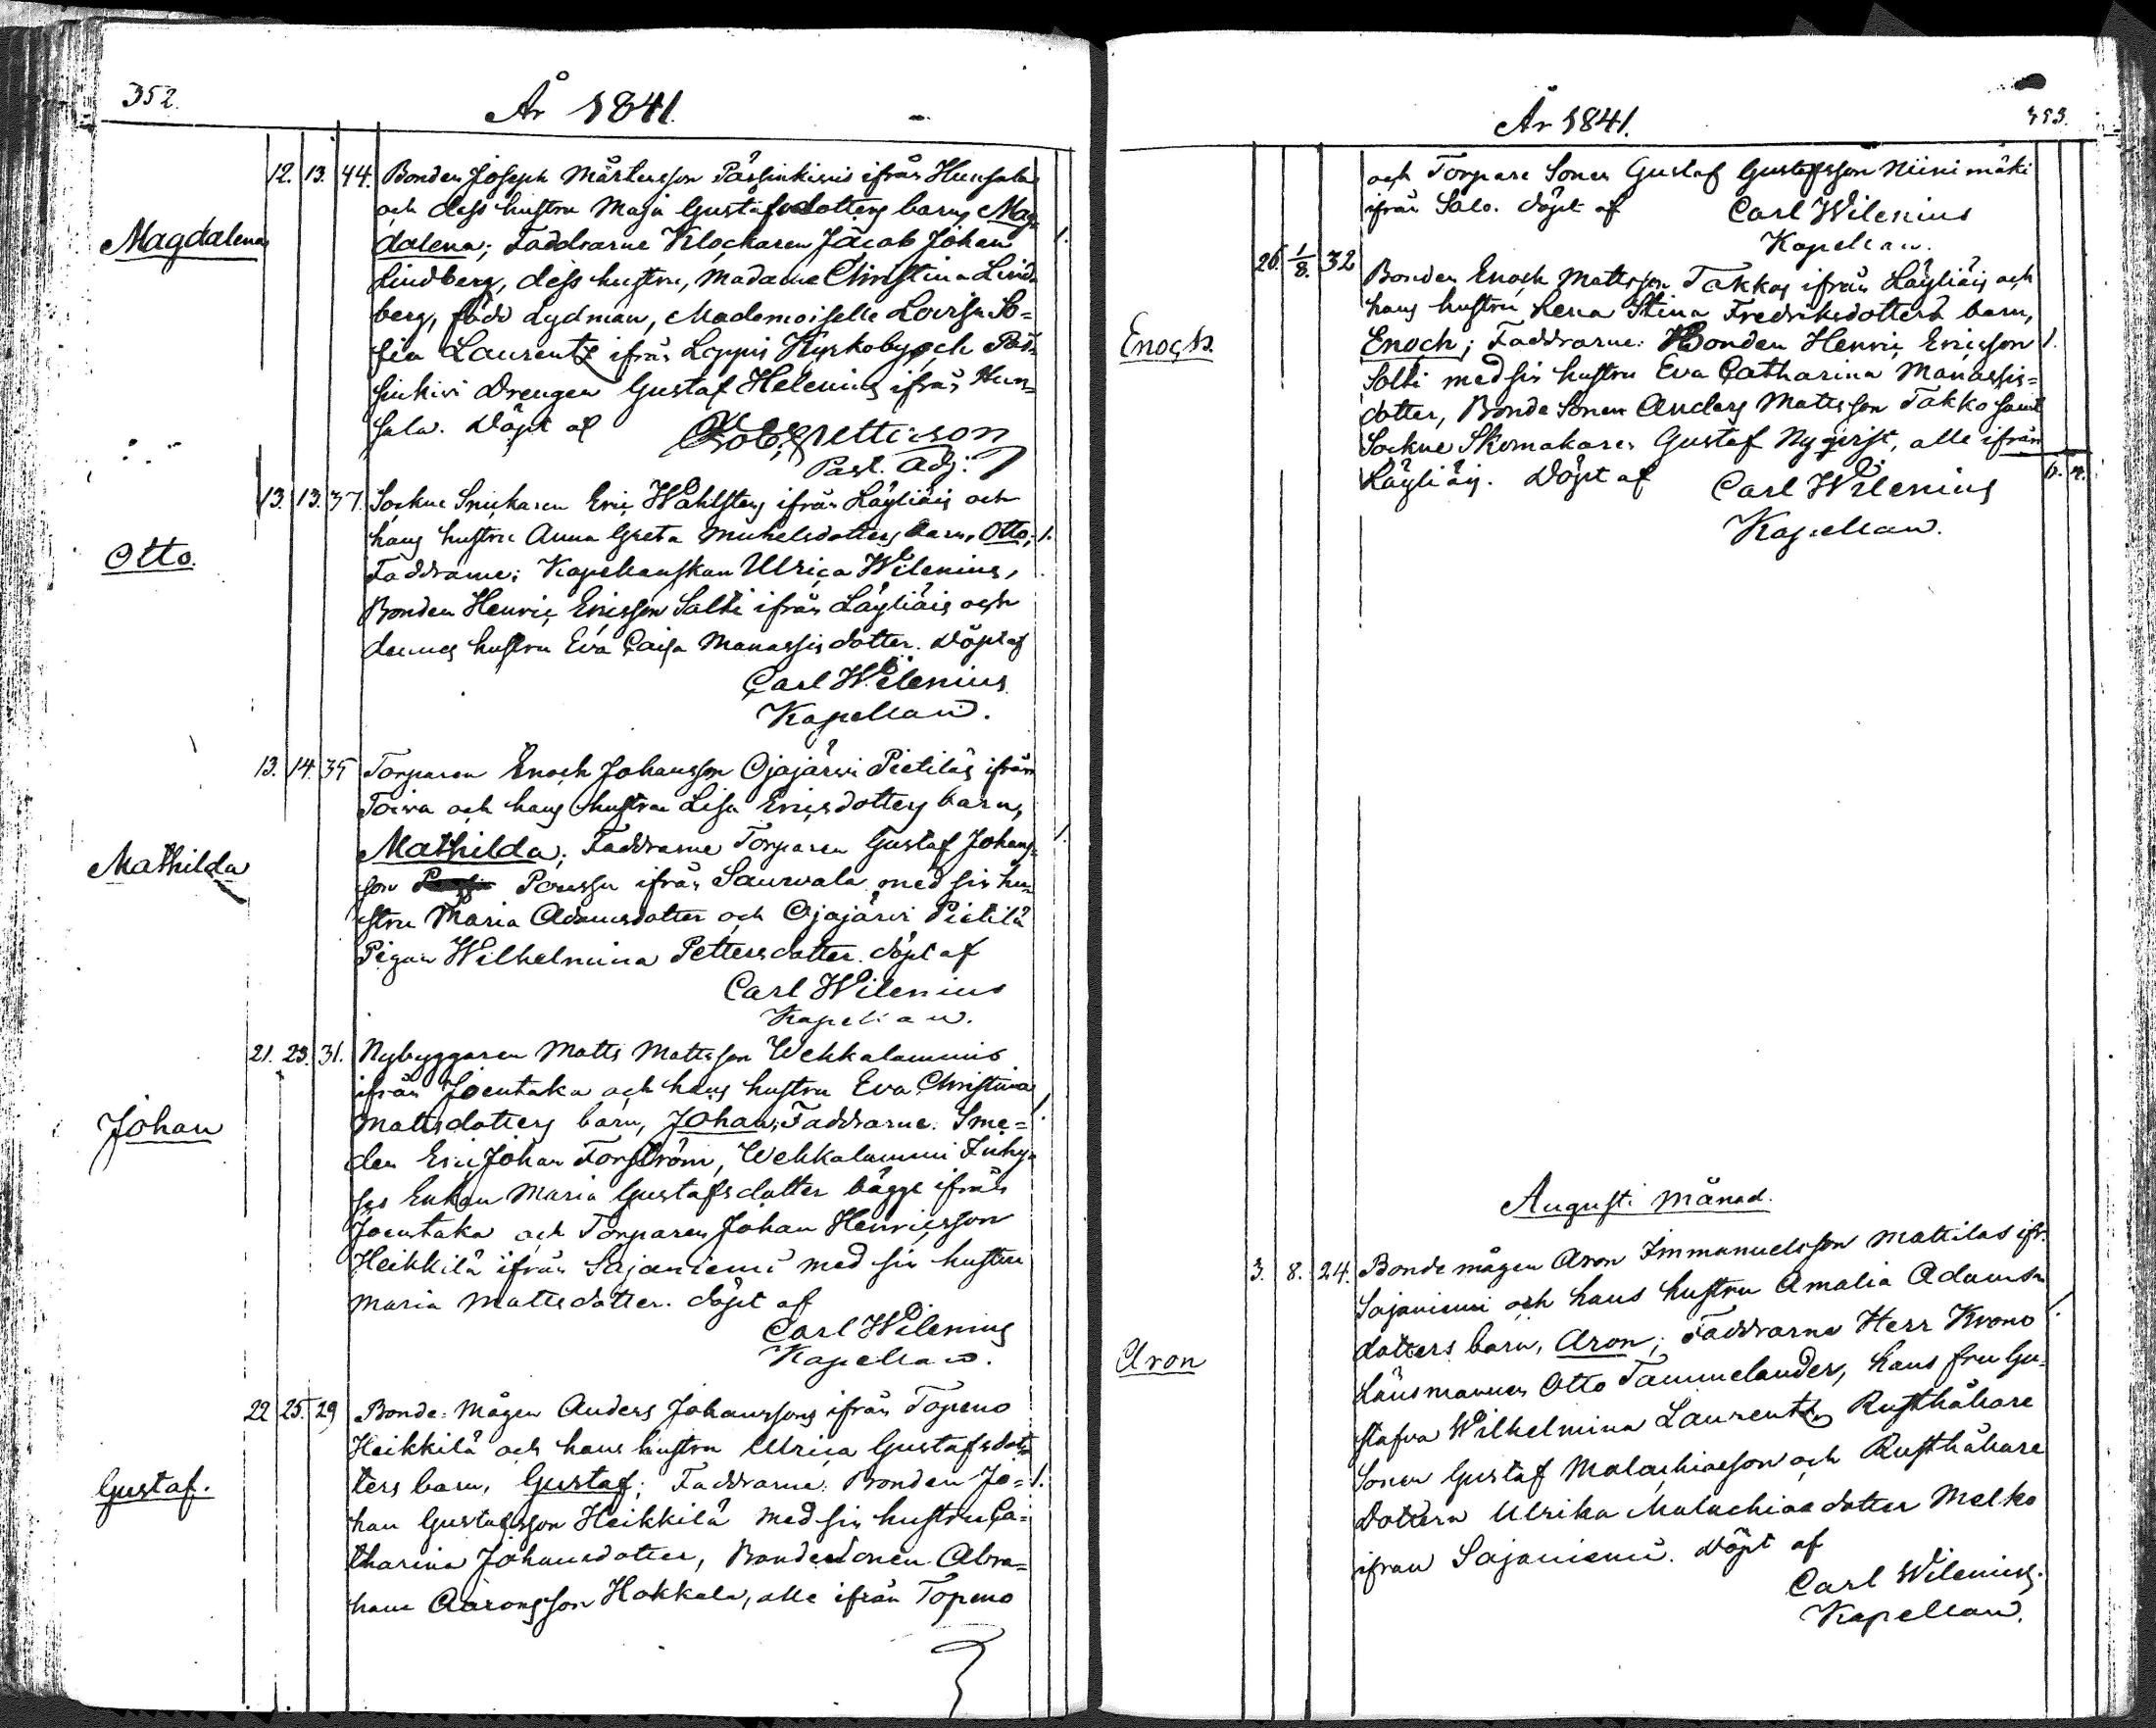 352.
År 1841.
12. 13. 44. Bonden Joseph Mårtensson Pässinkivis ifrån Hunsala
och dess hustru Maja Gustafsdotters barn, Mag-
Magdalena
dalena; Faddrarne Klockaren Jacob Johan 1.
Lindberg, dess hustru, Madame Christina Lind-
berg, född Lydman, Mademoiselle Lovisa So=
fia Laurentz ifrån Loppis Kyrkoby och Päs-
sinkivi Drengen Gustaf Helenius ifrån Hun-
sala. Döpt af
Past. Adj:
13. 13. 37. Sockne Snickaren Eric Wahlstens ifrån Läyliäis och
hans hustru Anna Greta Michelsdotters barn, Otto; 1.
Otto.
Faddrarne; Kapellanskan Ulrica Wilenius,
Bonden Henric Ericsson Salli ifrån Läyliäis och
dennes hustru Eva Caisa Manassis dotter. Döpt af
Carl Wilenius
Kapellan.
13. 14. 35 Torparen Enoch Johansson Ojajärvi Pietiläs ifrån
Toiva och hans hustru Lisa Ericsdotters barn,
Mathilda
Mathilda; Faddrarne Torparen Gustaf Johans= 1.
son Poussu ifrån Saurvala med sin hu-
stru Maria Adamsdotter och Ojajärvi Pietilä
Pigan Wilhelmina Pettersdotter. döpt af
Carl Wilenius
Kapellan.
21. 23. 31. Nybyggaren Matts Mattsson Wehkalammis
ifrån Joentaka och hans hustru Eva Christina
Johan
Mattsdotters barn, Johan; Faddrarne: Sme= 1.
den Eric Johan Forsström, Wehkalammi Inhy-
ses Enkan Maria Gustafsdotter bägge ifrån
Joentaka och Torparen Johan Henricsson
Heikkilä ifrån Sajaniemi med sin hustru
Maria Mattsdotter. döpt af
Carl Wilenius
Kapellan.
22 25. 29 Bonde-Mågen Anders Johanssons ifrån Topeno
Heikkilä och hans hustru Ulrica Gustafsdot-
Gustaf.
ters barn, Gustaf; Faddrarne: Bonden Jo= 1.
han Gustafsson Heikkilä med sin hustru Ca=
tharina Johansdotter, Bondesonen Abra=
ham Aaronsson Hokkala, alla ifrån Topeno
353.
År 1841.
och Torpare Sonen Gustaf Gustafsson Niinimäki
ifrån Salo. döpt af Carl Wilenius
Kapellan.
26. 1/8. 32 Bonden Enoch Mattsson Takkos ifrån Läyliäis och
hans hustru Lena Stina Fredriksdotters barn,
Enoch.
Enoch; Faddrarne: Bonden Henric Ericsson 1.
Salli med sin hustru Eva Catharina Manassis=
dotter, Bonde Sonen Anders Mattsson Takko samt
Sockne Skomakaren Gustaf Nyqvist, alle ifrån
Läyliäis. Döpt af Carl Wilenius
Kapellan.
Augusti Månad.
3. 8. 24. Bonde mågen Aron Immanuelsson Mattilas ifr.
Sajaniemi och hans hustru Amalia Adams-
Aron
dotters barn, Aron; Faddrarne Herr Krono 1.
Länsmannen Otto Tammelander, hans fru Gu-
stafva Wilhelmina Laurentz, Rusthållare
Sonen Gustaf Malachiasson och Rusthållare
Dottren Ulrika Malachiaedotter Melko
ifrån Sajaniemi. Döpt af
Carl Wilenius.
Kapellan.